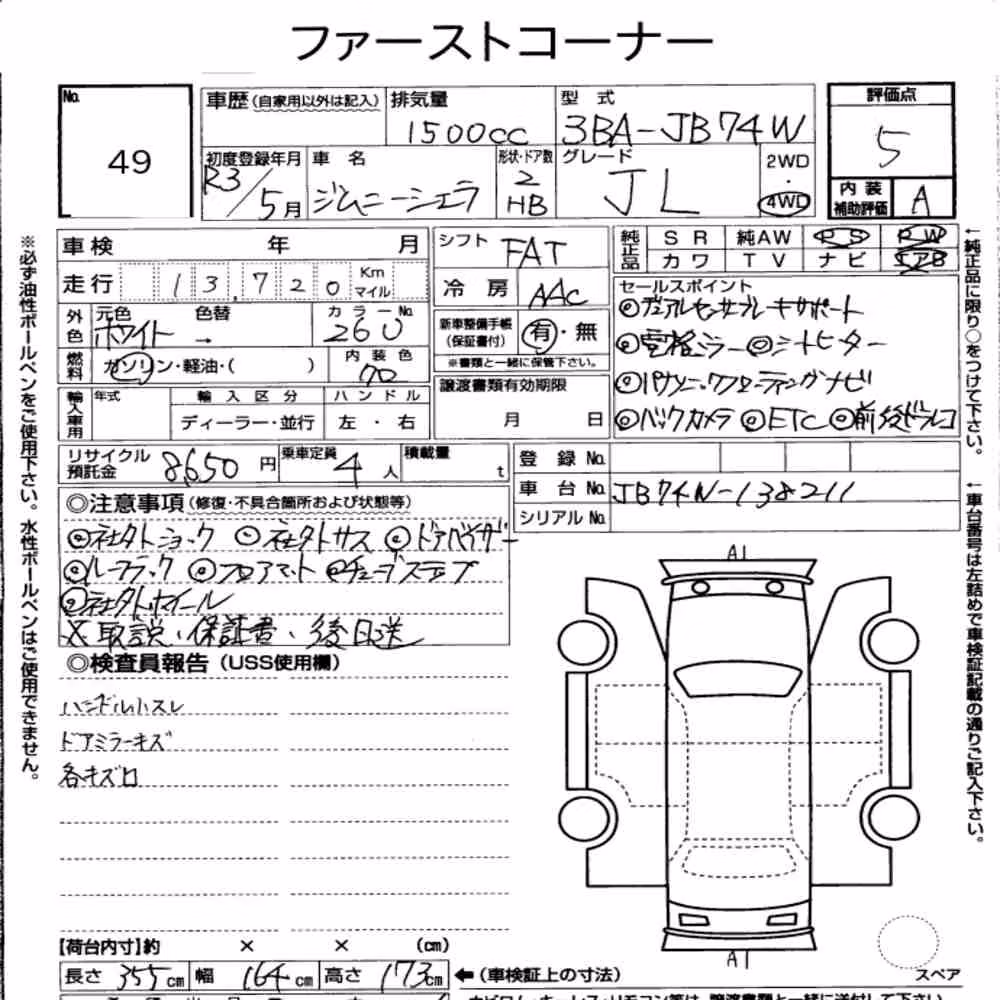 ファーストコーナー
No. 49
車歴(自家用以外は記入) 排気量 1500cc 型式 3BA-JB74W 評価点 5
初度登録年月 R3/5月 車名 ジムニーシエラ 形状・ドア数 2 HB グレード JL 2WD・4WD 内装補助評価 A
車検 年 月
走行 13,720 Km マイル
シフト FAT
冷房 AAC
純正品 SR 純AW PS PW
カワ TV ナビ エアB
外色 元色 ホワイト 色替 → カラーNo. 26U
燃料 ガソリン・軽油・( ) 内装色
新車整備手帳(保証書付) 有・無
※書類と一緒に保管下さい。
セールスポイント
◎デュアルセンサブレーキサポート
◎電格ミラー ◎シートヒーター
◎パナソニックフローティングナビ
◎バックカメラ ◎ETC ◎前後ドラレコ
輸入車用 年式 輸入区分 ハンドル
ディーラー・並行 左・右
譲渡書類有効期限
月 日
リサイクル預託金 8,650円 乗車定員 4人 積載量 t
登録No.
車台No. JB74W-138211
シリアルNo.
◎注意事項(修復・不具合箇所および状態等)
◎社外ショック ◎社外サス ◎ドアバイザー
◎ルーフラック ◎フロアマット ◎チューブステップ
◎社外ホイール
※取説、保証書、後日送
◎検査員報告(USS使用欄)
ハンドル小スレ
ドアミラーキズ
各キズロ
A1
A1
スペア
【荷台内寸】約 × × (cm)
長さ 355cm 幅 164cm 高さ 173cm ←(車検証上の寸法)
※必ず油性ボールペンをご使用下さい。水性ボールペンはご使用できません。
←純正品に限り○をつけて下さい。
←車台番号は左詰めで車検証記載の通りご記入下さい。